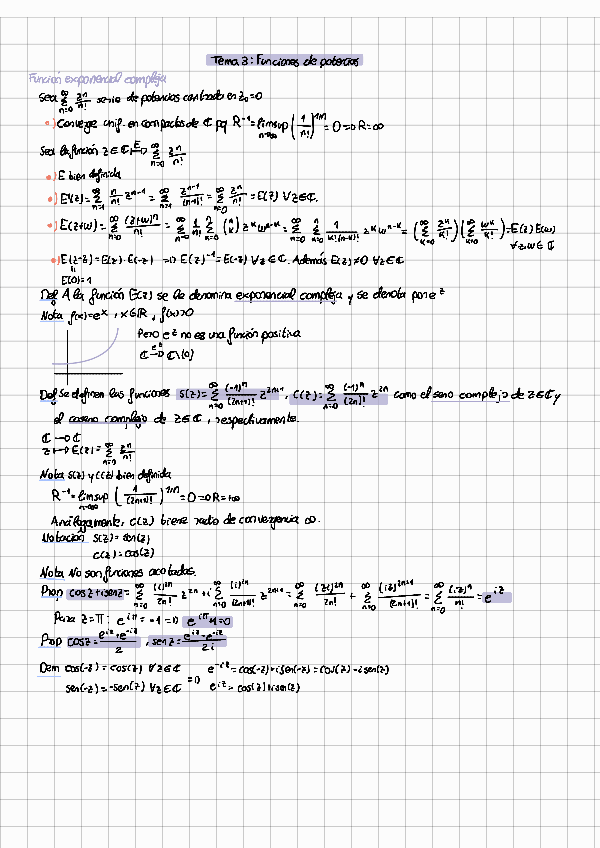 Tema 3: Funciones de potencias
Función exponencial compleja
Sea ∞Σn=0 zⁿ/n! serie de potencias centrada en z₀=0
•) Converge unif. en compactos de ℂ pq R⁻¹=limsup n→∞ (1/n!)^1/n = 0 ⇒ R=∞
Sea la función z∈ℂ ↦E ∞Σn=0 zⁿ/n!
•) E bien definida
•) E'(z)= ∞Σn=1 n/n! zⁿ⁻¹ = ∞Σn=1 zⁿ⁻¹/(n-1)! = ∞Σn=0 zⁿ/n! = E(z) ∀z∈ℂ.
•) E(z+w)= ∞Σn=0 (z+w)ⁿ/n! = ∞Σn=0 1/n! nΣk=0 (n k) zᵏ wⁿ⁻ᵏ = ∞Σn=0 nΣk=0 1/k!(n-k)! zᵏ wⁿ⁻ᵏ = (∞Σk=0 zᵏ/k!) (∞Σk=0 wᵏ/k!) = E(z) E(w)
∀z,w∈ℂ
•) E(z-z)=E(z)·E(-z) ⇒ E(z)⁻¹=E(-z) ∀z∈ℂ. Además E(z)≠0 ∀z∈ℂ
E(0)=1
Def A la función E(z) se le denomina exponencial compleja y se denota por e^z
Nota f(x)=eˣ, x∈ℝ, f(x)>0
Pero e^z no es una función positiva
ℂ →e^z ℂ\{0}
Def Se definen las funciones S(z)= ∞Σn=0 (-1)ⁿ/(2n+1)! z²ⁿ⁺¹, C(z)= ∞Σn=0 (-1)ⁿ/(2n)! z²ⁿ como el seno complejo de z∈ℂ y
el coseno complejo de z∈ℂ, respectivamente.
ℂ → ℂ
z ↦ E(z)= ∞Σn=0 zⁿ/n!
Nota S(z) y C(z) bien definida
R⁻¹=limsup n→∞ (1/(2n+1)!)^1/n = 0 ⇒ R=+∞
Análogamente, C(z) tiene radio de convergencia ∞.
Notación S(z)=sen(z)
C(z)=cos(z)
Nota No son funciones acotadas.
Prop cosz+isenz= ∞Σn=0 (i)²ⁿ/2n! z²ⁿ + i ∞Σn=0 (i)²ⁿ/(2n+1)! z²ⁿ⁺¹ = ∞Σn=0 (zi)²ⁿ/2n! + ∞Σn=0 (iz)²ⁿ⁺¹/(2n+1)! = ∞Σn=0 (iz)ⁿ/n! = e^iz
Para z=π: e^iπ = -1 ⇒ e^iπ+1=0
Prop cosz= e^iz+e^-iz/2, senz= e^iz-e^-iz/2i
Dem cos(-z)=cos(z) ∀z∈ℂ ⇒ e^-iz=cos(-z)+isen(-z)=cos(z)-isen(z)
sen(-z)=-sen(z) ∀z∈ℂ e^iz=cos(z)+isen(z)